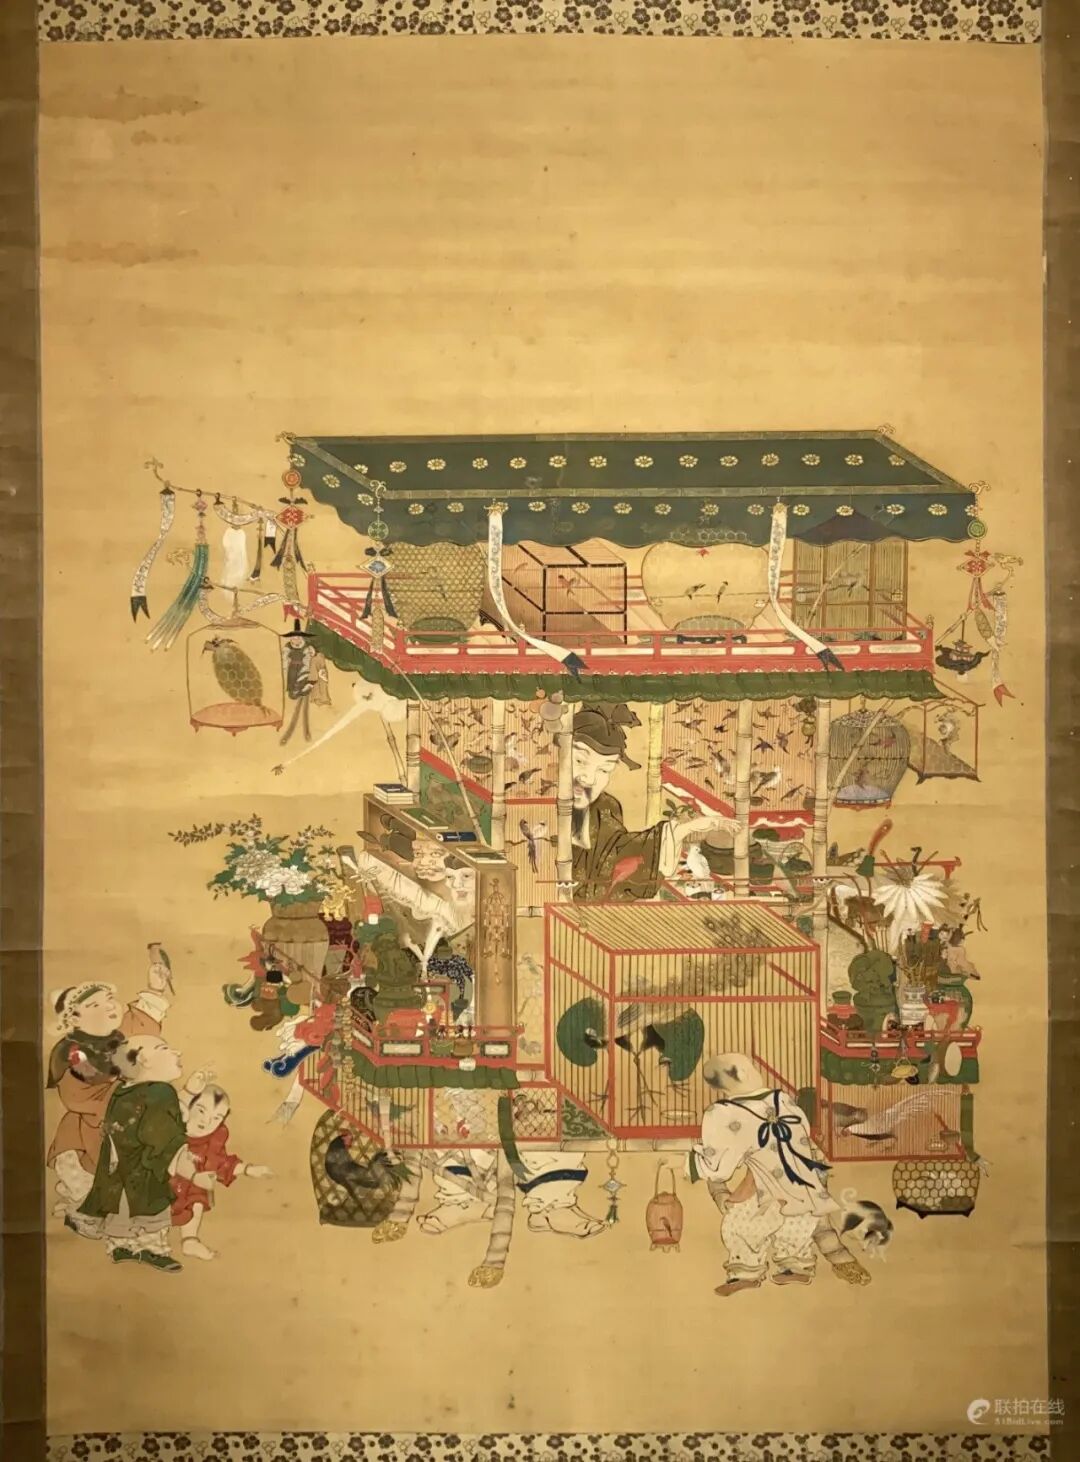 联拍在线
51BidLive.com